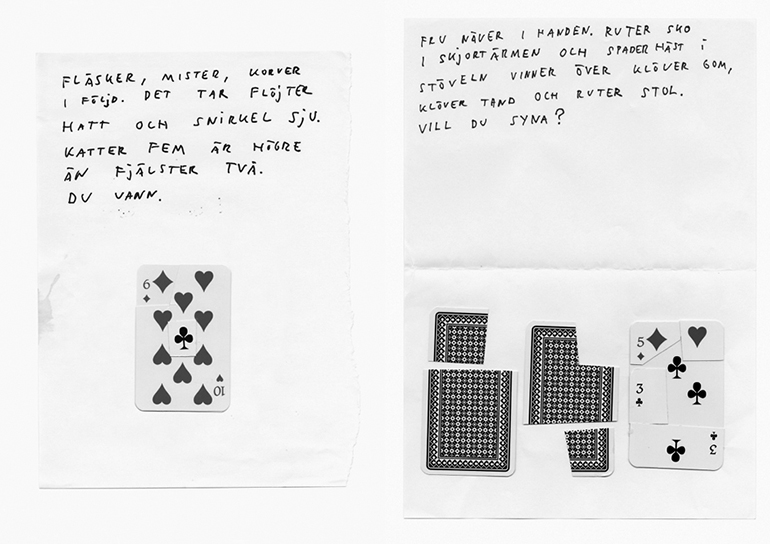 FLÄSKER, MISTER, KORVER
I FÖLJD. DET TAR FLÖJTER
HATT OCH SNIRKEL SJU.
KATTER FEM ÄR HÖGRE
ÄN FJÄLSTER TVÅ.
DU VANN.
6
10
FLU NÄVER I HANDEN. RUTER SKO
I SKJORTÄRMEN OCH SPADER HÄST I
STÖVELN VINNER ÖVER KLÖVER GOM,
KLÖVER TAND OCH RUTER STOL.
VILL DU SYNA?
5
3
3